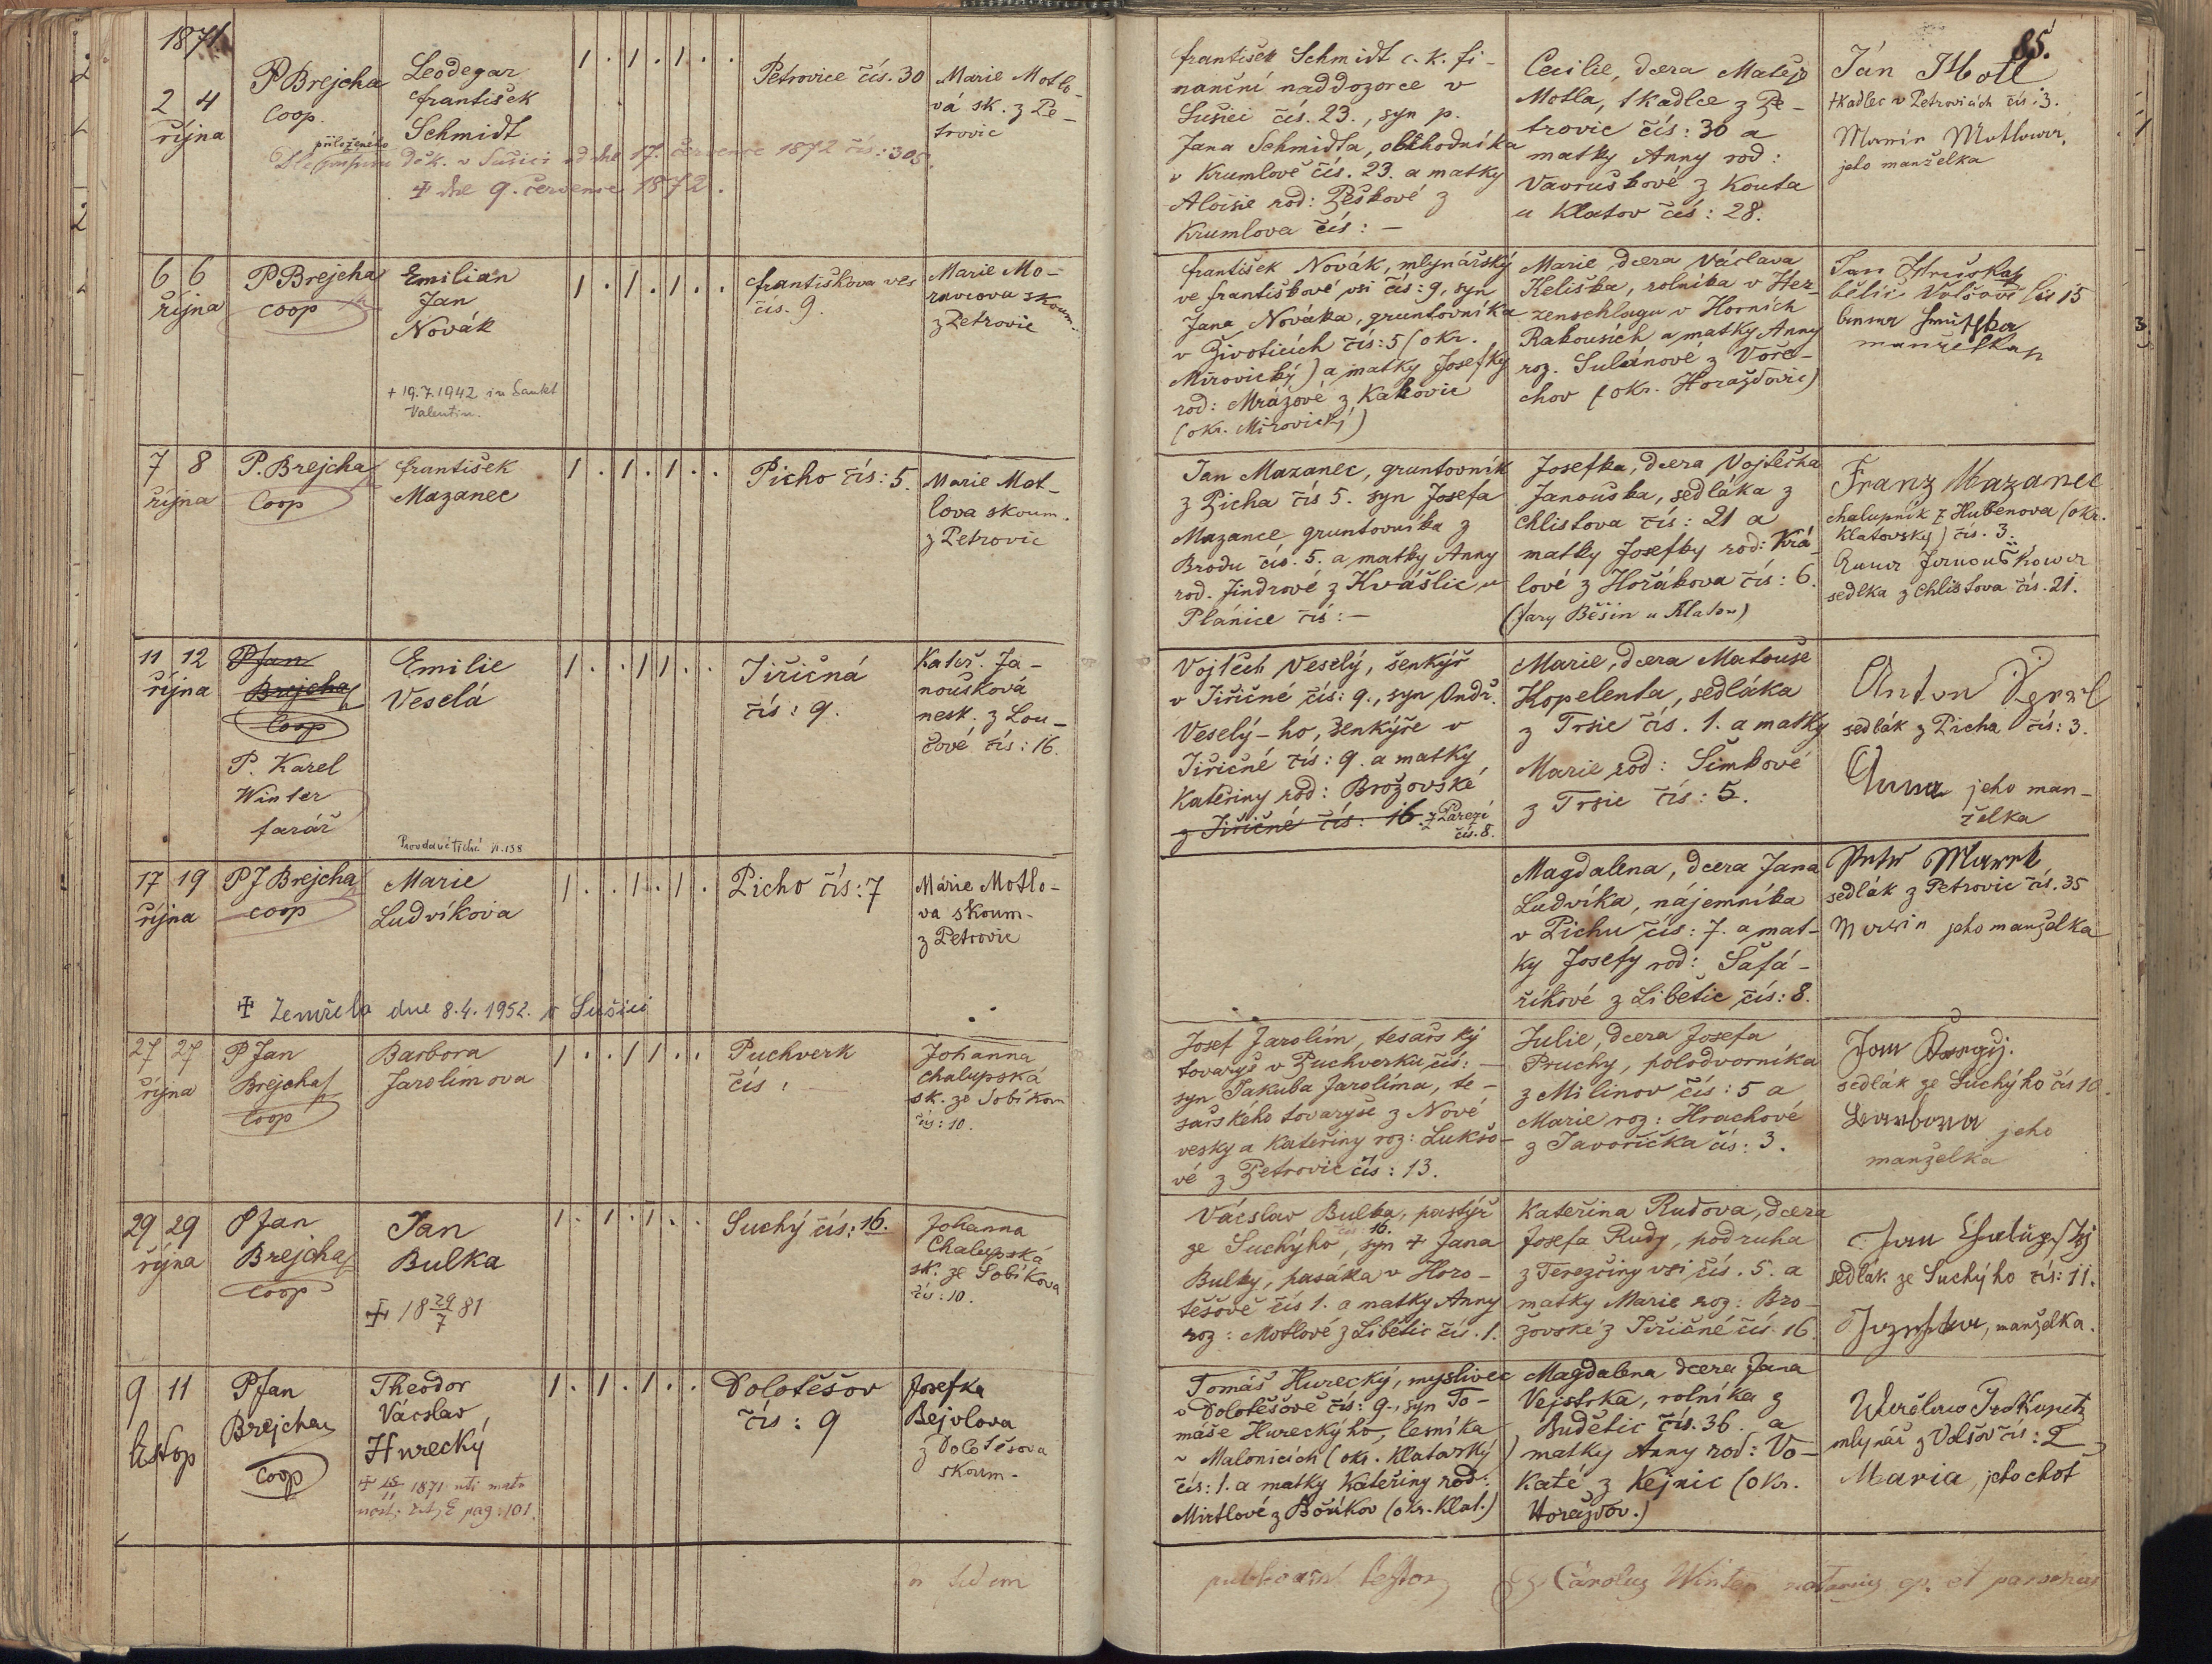 1871.
85.
2 4
října
P Brejcha
Coop.
Leodegar
František
Schmidt
přiloženého
děk. v Sušici od dne 17. července 1872 čís: 305.
+ dne 9. července 1872.
1 . 1 . 1 . .
Petrovice čís. 30
Marie Motlo-
vá sk. z Pe-
trovic
František Schmidt c. k. fi-
nanční naddozorce v
Sušici čís. 23., syn p.
Jana Schmidta, obchodníka
v Krumlově čís. 23. a matky
Aloisie rod: Peškové z
Krumlova čís: –
Cecilie, dcera Matěje
Motla, tkadlce z Pe-
trovic čís: 30 a
matky Anny rod:
Vavruškové z Kouta
u Klatov čís: 28.
Ján Motl
tkadlec v Petrovicích čís. 3.
Marie Motlowa,
jeho manželka
6 6
října
P Brejcha
coop
Emilian
Jan
Novák
+ 19.7.1942 in Sankt
Valentin.
1 . 1 . 1 . .
Františkova ves
čís. 9.
Marie Mo-
ravcova skoum.
z Petrovic
František Novák, mlynářský
ve Františkově vsi čís: 9, syn
Jana Nováka, gruntovníka
v Životicích čís: 5 (okr.
Mirovický) a matky Josefky
rod: Mrázové z Kakovic
(okr. Mirovický)
Marie, dcera Václava
Keliška, rolníka v Her-
zenschlagu v Horních
Rakousích a matky Anny
roz. Sulanové z Voře-
chov (okr. Horažďovic)
Jan Hruška
15
manželka
7 8
října
P. Brejcha
Coop
František
Mazanec
1 . 1 . 1 . .
Picho čís: 5.
Marie Mot-
lova skoum.
z Petrovic
Jan Mazanec, gruntovník
z Picha čís 5. syn Josefa
Mazance gruntovníka z
Brodu čís. 5. a matky Anny
rod. Jindrové z Kvášlic u
Plánice čís: –
Josefka, dcera Vojtěcha
Janouška, sedláka z
Chlistova čís: 21 a
matky Josefky rod: Krá-
lové z Hořákova čís: 6.
(fary Běšin u Klatov)
Franz Mazanec
chalupník z Hubenova (okr.
Klatovský) čís. 3.
Anna Janouškowa
sedlka z Chlistova čís. 21.
11 12
října
P Jan
Brejcha
Coop
P. Karel
Winter
farář
Emilie
Veselá
1 . . 1 1 . .
Jiřičná
čís: 9.
Kateř. Ja-
noušková
nesk. z Lou-
čové čís: 16.
Vojtěch Veselý, šenkýř
v Jiřičné čís: 9., syn Ondř.
Veselý-ho, šenkýře v
Jiřičné čís: 9. a matky
Kateřiny rod: Brožovské
z Jiřičné čís: 16. z Pařezí
čís. 8.
Marie, dcera Matouše
Kopelenta, sedláka
z Trsic čís. 1. a matky
Marie rod: Šimkové
z Trsic čís: 5.
Anton
sedlák z Picha čís: 3.
Anna jeho man-
želka
17 19
října
P J Brejcha
coop
Marie
Ludvíkova
+ Zemřela dne 8.4.1952. v Sušici
1 . . 1 . 1 .
Picho čís: 7
Marie Motlo-
va skoum-
z Petrovic
Magdalena, dcera Jana
Ludvíka, nájemníka
v Pichu čís: 7. a mat-
ky Josefy rod: Šafá-
říkové z Libětic čís: 8.
Petr Marek
sedlák z Petrovic čís. 35
Marie jeho manželka
27 27
října
P Jan
Brejcha
Coop
Barbora
Jarolímova
1 . . 1 1 . .
Puchverk
čís:
Johanna
Chalupská
sk. ze Sobíkova
čís: 10.
Josef Jarolím, tesařský
tovaryš v Puchverku čís: –
syn Jakuba Jarolíma, te-
sařského tovaryše z Nové
vesky a Kateřiny roz: Lukšo-
vé z Petrovic čís: 13.
Julie, dcera Josefa
Pruchy, polodvorníka
z Milinov čís: 5 a
Marie roz: Hrachové
z Javoříčka čís: 3.
Jan
sedlák ze Suchýho čís 10.
Barbora jeho
manželka
29 29
října
P Jan
Brejcha
coop
Jan
Bulka
+ 18 29/7 81
1 . 1 . 1 . .
Suchý čís: 16.
Johanna
Chalupská
sk. ze Sobíkova
čís: 10.
Václav Bulka, pastýř
ze Suchýho čís 16., syn + Jana
Bulky, pasáka v Horo-
těšově čís 1. a matky Anny
roz: Motlové z Libětic čís. 1.
Kateřina Rudova, dcera
Josefa Rudy, podruha
z Terezčiny vsi čís. 5. a
matky Marie roz: Bro-
žovské z Jiřičné čís 16.
Jan
sedlák ze Suchýho čís: 11.
Josefka, manželka.
9 11
listop
P Jan
Brejcha
coop
Theodor
Václav
Hurecký
1871
pag: 101.
1 . 1 . 1 . .
Dolotěšov
čís: 9
Josefka
Bejvlova
z Dolotěšova
skoum-
Tomáš Hurecký, myslivec
v Dolotěšově čís: 9., syn To-
máše Hureckýho, lesníka
v Malonicích (okr. Klatovský)
čís: 1. a matky Kateřiny rod:
Mirtlové z Bořikov (okr. Klat.)
Magdalena dcera Jana
Vejstrka, rolníka z
Budětic čís. 36. a
matky Anny rod: Vo-
katé z Kejnic (okr.
Horažďov.)
mlynář z Volšov čís: 2
Maria, jeho choť
Carolus Winter